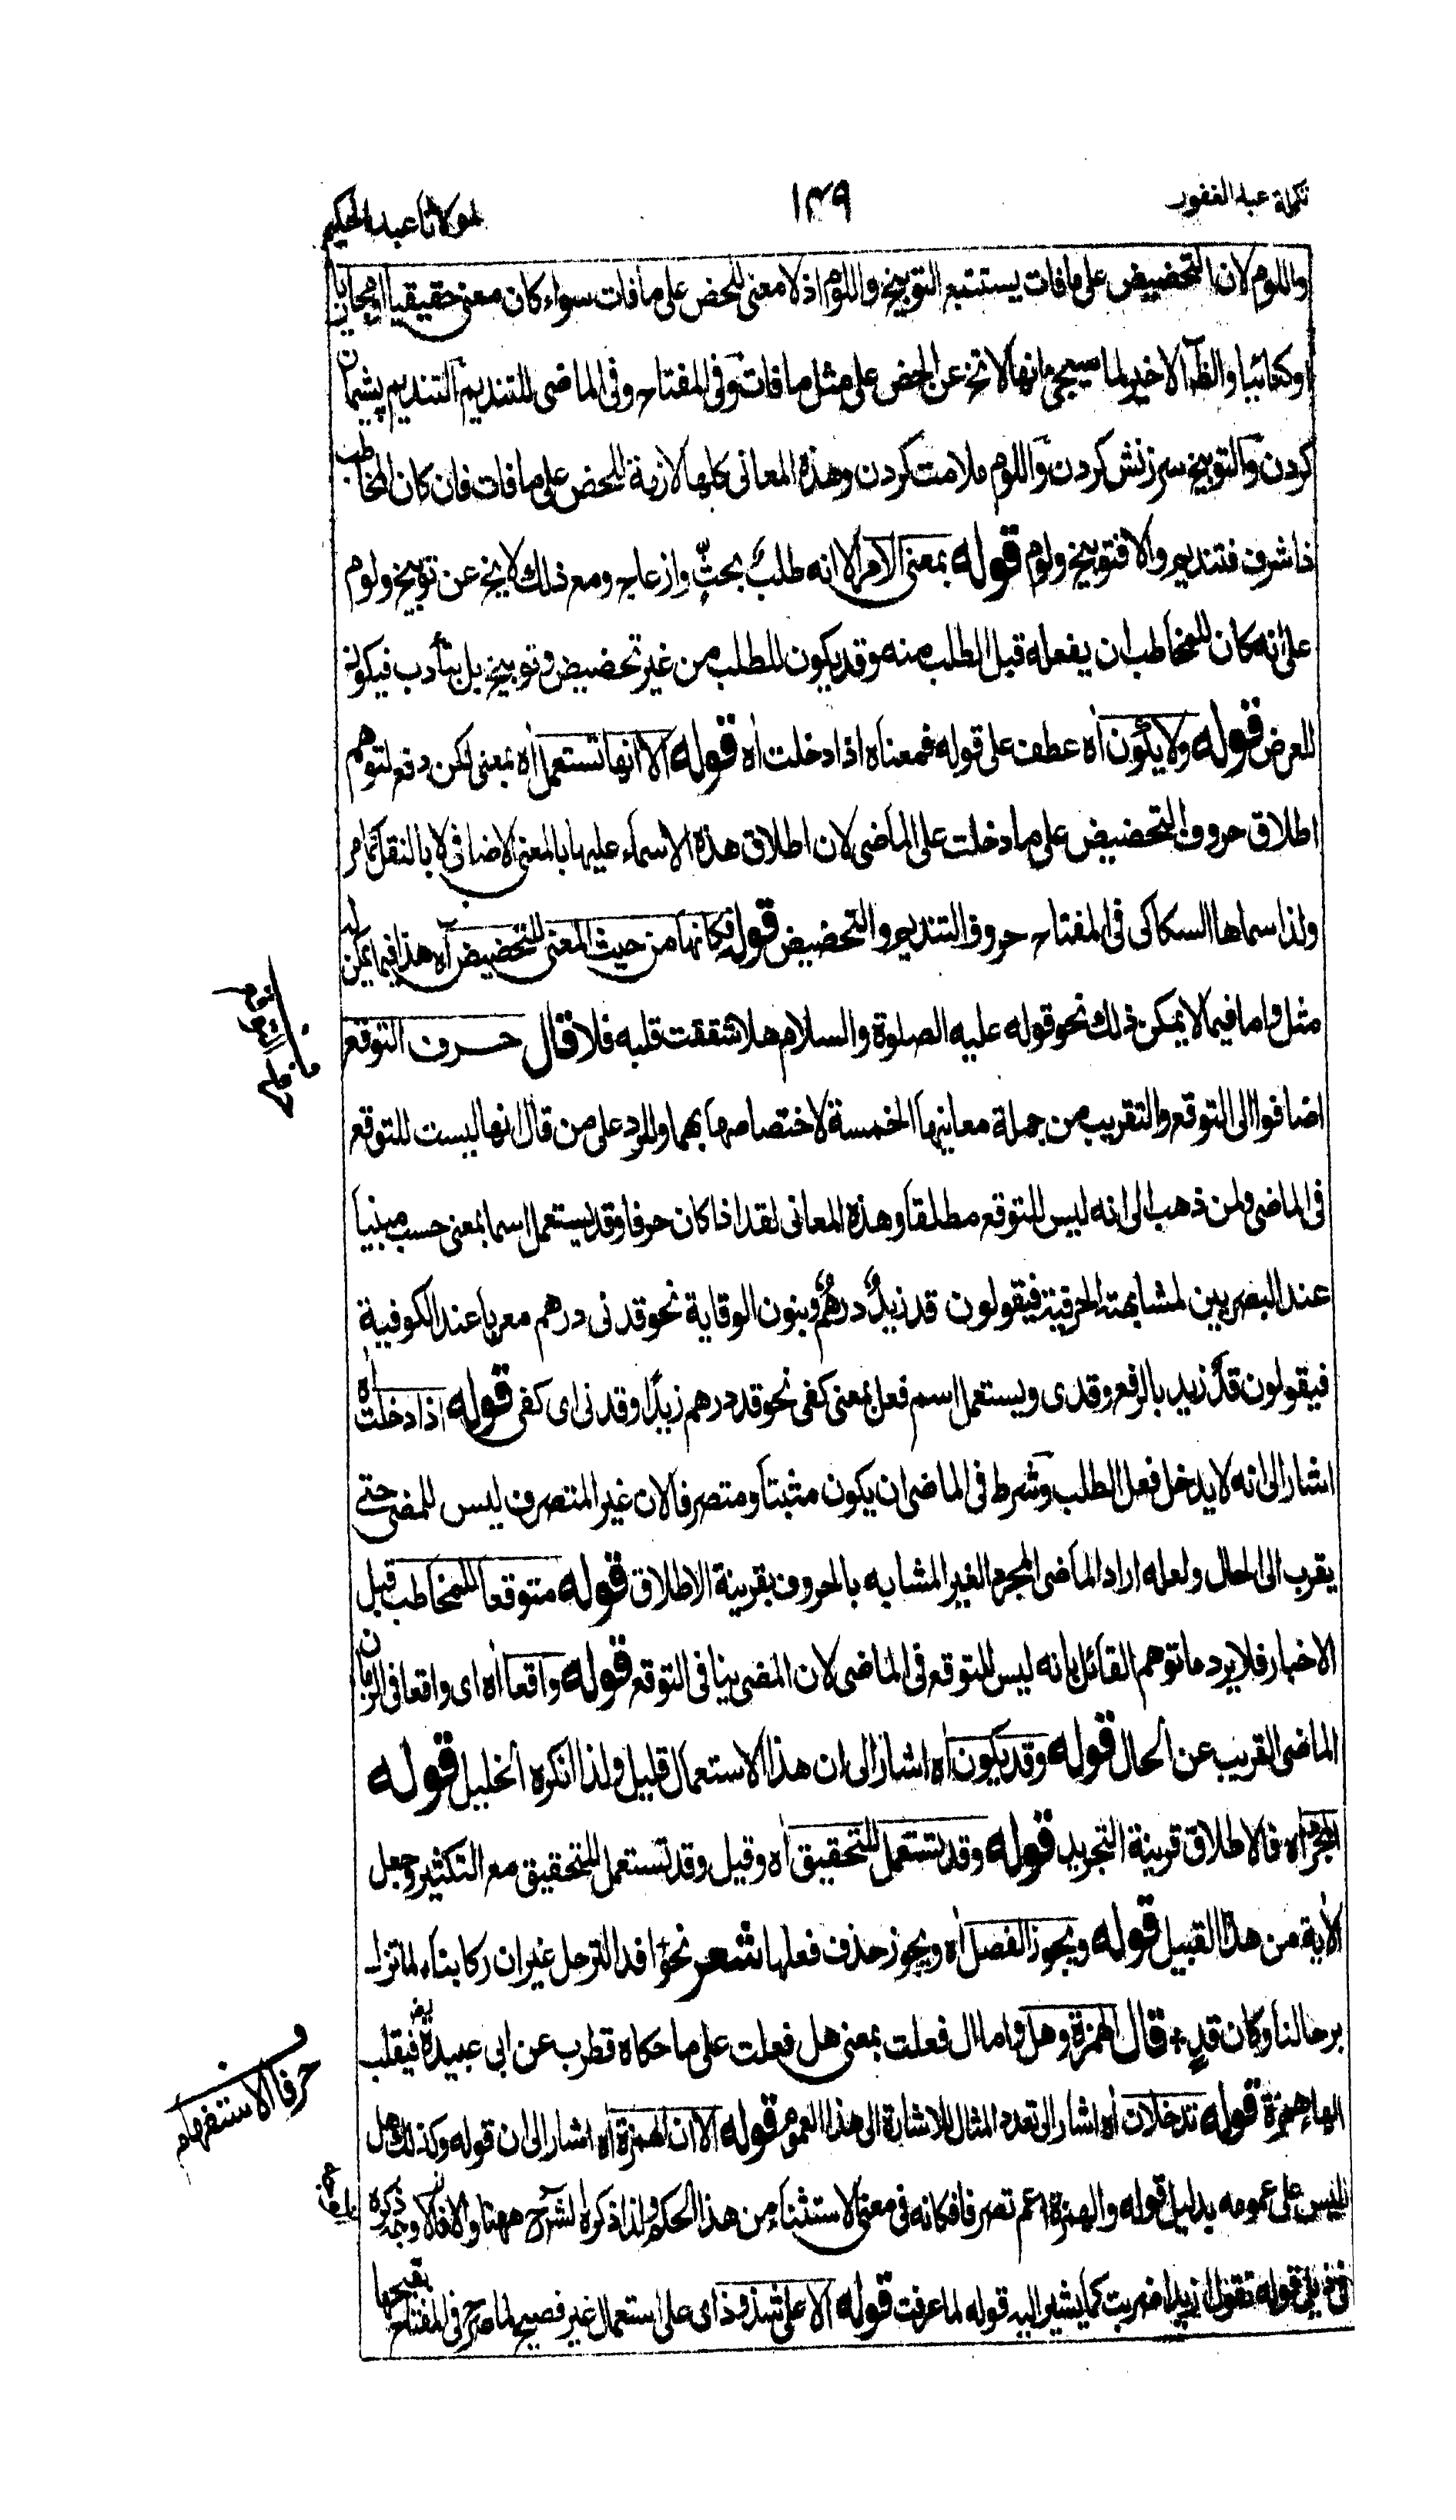 تكملة عبد الغفور
١٤٩
لمولانا عبد الحكيم
واللوم لان التحضيض على مافات يستتبع التوبيخ واللوم اذ لا معنى للحض على مافات سواء كان معنى حقيقيا او مجازيا
او كنائيا والظ الاخير لما سيجئ انها لا تخ عن الحض على مثل مافات وفى المفتاح وفى الماضى للتنديم التنديم پشيمان
كردن والتوبيخ سرزنش كردن واللوم ملامت كردن وهذه المعانى كلها لازمة للحض على مافات فان كان المخاطب
ذا شرف فتنديم والا فتوبيخ ولوم قوله بمعنى الامر الا انه طلب بحث وازعاج ومع ذلك لا يخ عن توبيخ ولوم
على انه كان للمخاطب ان يفعله قبل الطلب منه وقد يكون للطلب من غير تحضيض وتوبيخ بل بتأدب فيكون
للعرض قوله ولا يكون اه عطف على قوله فمعناه اذا دخلت اه قوله الا انها تستعمل اه بمعنى لكن دفع لتوهم
اطلاق حروف التحضيض على ما دخلت على الماضى لان اطلاق هذه الاسماء عليها بالمعنى الاضافى لا بالنقل كما مر
ولذا سماها السكاكى فى المفتاح حروف التنديم والتحضيض قوله فكانها من حيث المعنى للتحضيض اه هذا فيما يمكن
مثل واما فيما لا يمكن ذلك نحو قوله عليه الصلوة والسلام هلا شققت قلبه فلا قال حرف التوقع
اضافوا الى التوقع والتقريب من جملة معانيها الخمسة لاختصاصها بهما والرد على من قال انها ليست للتوقع
فى الماضى ولمن ذهب الى انه ليس للتوقع مطلقا وهذه المعانى لقد اذا كان حرفا وقد يستعمل اسما بمعنى حسب مبنيا
عند البصريين لمشابهته الحرفية فيقولون قد زيد درهم وبنون الوقاية نحو قدنى درهم معربا عند الكوفية
فيقولون قد زيد بالرفع وقدى ويستعمل اسم فعل بمعنى كفى نحو قد درهم زيدا وقدنى اى كفى قوله اذا دخلت اه
اشار الى انه لا يدخل فعل الطلب وشرط فى الماضى ان يكون مثبتا ومتصرفا لان غير المتصرف ليس للمضى حتى
يقرب الى الحال ولعله اراد الماضى المجرد الغير المشابه بالحروف بقرينة الاطلاق قوله متوقعا للمخاطب قبل
الاخبار فلا يرد ما توهم القائل بانه ليس للتوقع فى الماضى لان المضى ينافى التوقع قوله واقعا اه اى واقعا فى الزمان
الماضى القريب عن الحال قوله وقد يكون اه اشار الى ان هذا الاستعمال قليل ولذا انكره الخليل قوله
المجرد اه فالاطلاق قرينة التجريد قوله وقد تستعمل للتحقيق اه وقيل وقد تستعمل للتحقيق مع التكثير وجعل
الأية من هذا القبيل قوله ويجوز الفصل اه ويجوز حذف فعلها شعر نحو افد الترحل غير ان ركابنا لما تزل
برحالنا وكان قد قال الهمزة وهل واما ال فعلت بمعنى هل فعلت على ما حكاه قطرب عن ابى عبيدة فيقلب
الهاء همزة قوله تدخلان اه اشار الى تعدد المثال للاشارة الى هذا العموم قوله الا ان الهمزة اه اشار الى ان قوله وكذلك هل
ليس على عمومه بدليل قوله والهمزة اعم تصرفا فكانه فى معنى الاستثناء من هذا الحكم ولذا ذكره الشرح ههنا والا فلا وجه ذكره
قوله تقول ازيدا ضربت كما يشير اليه قوله لما عرفت قوله الا على شذوذ اى على استعمال غير فصيح لما صرح فى المفتاح بقبحها
حرفا الاستفهام